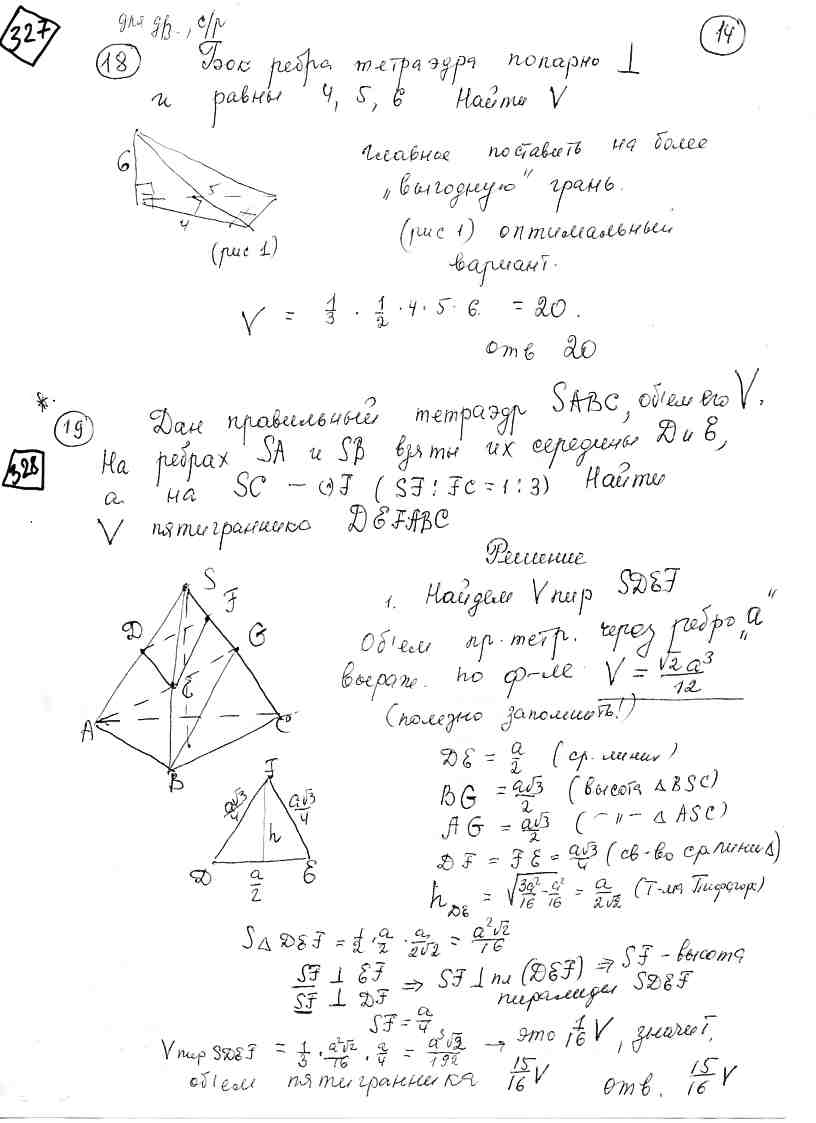 327
для дв., с/р
14
18 Бок ребра тетраэдра попарно ⊥
и равны 4, 5, 6 Найти V
Главное поставить на более
„выгодную" грань.
(рис 1) оптимальный
вариант.
6
5
4
(рис 1)
V = 1/3 · 1/2 · 4 · 5 · 6. = 20.
отв 20
*.
19 Дан правильный тетраэдр SABC, объем его V.
328
На ребрах SA и SB взяты их середины D и E,
а на SC – (·)F (SF:FC=1:3) Найти
V пятигранника DEFABC
Решение
1. Найдем V пир SDEF
Объем пр. тетр. через ребро „a"
выраж. по ф-ле V = √2a³/12
(полезно запомнить!)
S
F
D
G
E
A
C
B
DE = a/2 (ср. линия)
BG = a√3/2 (высота ΔBSC)
AG = a√3/2 (–"– ΔASC)
DF = FE = a√3/4 (св-во ср. линии Δ)
h DE = √(3a²/16 - a²/16) = a/2√2 (Т-ма Пифагора)
F
a√3/4
a√3/4
h
D
a/2
E
SΔDEF = 1/2 · a/2 · a/2√2 = a²√2/16
SF ⊥ EF
SF ⊥ DF ⇒ SF ⊥ пл (DEF) ⇒ SF - высота
пирамиды SDEF
SF = a/4
V пир SDEF = 1/3 · a²√2/16 · a/4 = a³√2/192 → это 1/16 V, значит,
объем пятигранника 15/16 V отв. 15/16 V